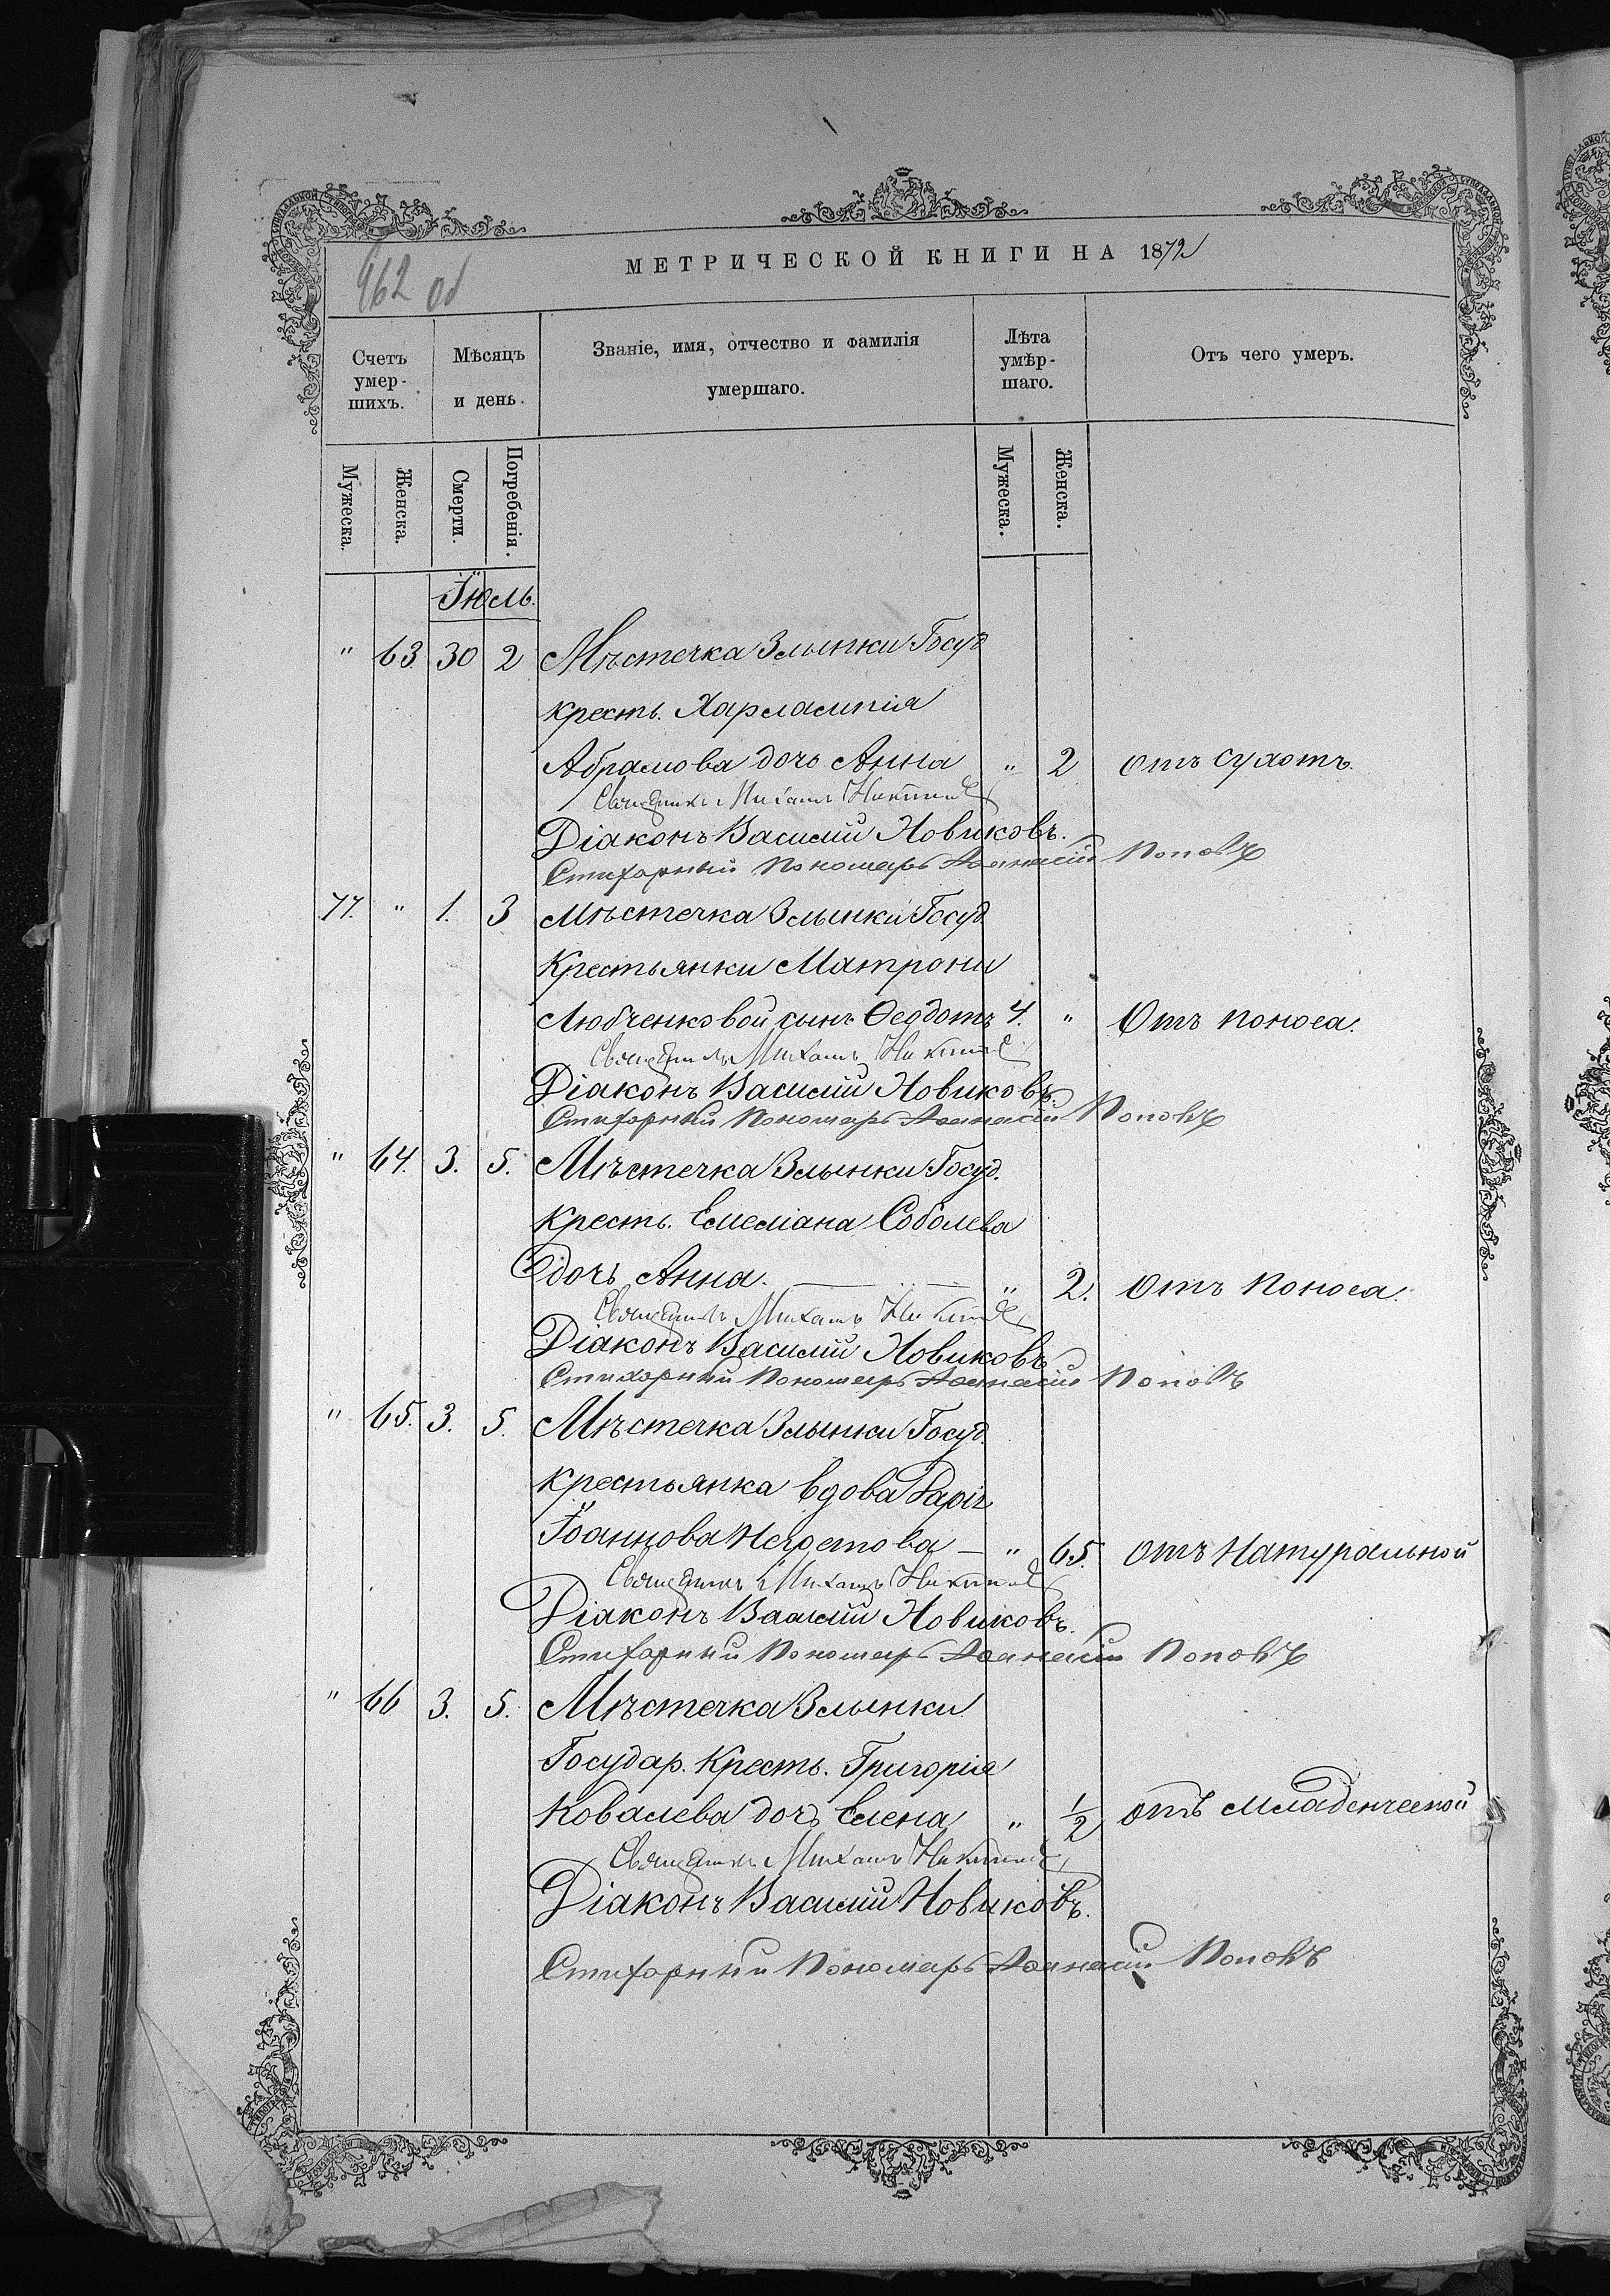 МЕТРИЧЕСКОЙ КНИГИ НА 1872
962 об
Счетъ умер- шихъ.
Мѣсяцъ и день.
Званіе, имя, отчество и фамилія умершаго.
Лѣта умѣр- шаго.
Отъ чего умеръ.
Мужеска. Женска. Смерти. Погребенія. Мужеска. Женска.
Іюль.
" 63. 30 2 Мѣстечка Злынки Госуд
кресть. Харлампія
Абрамова дочь Анна " 2 отъ сухотъ.
Священникъ Михаилъ
Діаконъ Василій Новиковъ.
Стихарный Пономарь Аѳанасій Поповъ
77. " 1. 3 Мѣстечка Злынки Госуд
Крестьянки Матроны
Любченковой сынъ Ѳеодотъ 4. " Отъ поноса.
Священникъ Михаилъ
Діаконъ Василій Новиковъ.
Стихарный Пономарь Аѳанасій Поповъ
" 64. 3. 5. Мѣстечка Злынки Госуд.
кресть. Емеліана Соболева
дочь Анна. " 2. Отъ поноса.
Священникъ Михаилъ
Діаконъ Василій Новиковъ
Стихарный Пономарь Аѳанасій Поповъ
" 65. 3. 5. Мѣстечка Злынки Госуд.
крестьянка вдова
Іоаннова " 65. отъ Натуральной
Священникъ Михаилъ
Діаконъ Василій Новиковъ.
Стихарный Пономарь Аѳанасій Поповъ
" 66 3. 5. Мѣстечка Злынки
Государ. Кресть. Григорія
Ковалева дочь Елена " 1/2 отъ младенческой
Священникъ Михаилъ
Діаконъ Василій Новиковъ.
Стихарный Пономарь Аѳанасій Поповъ